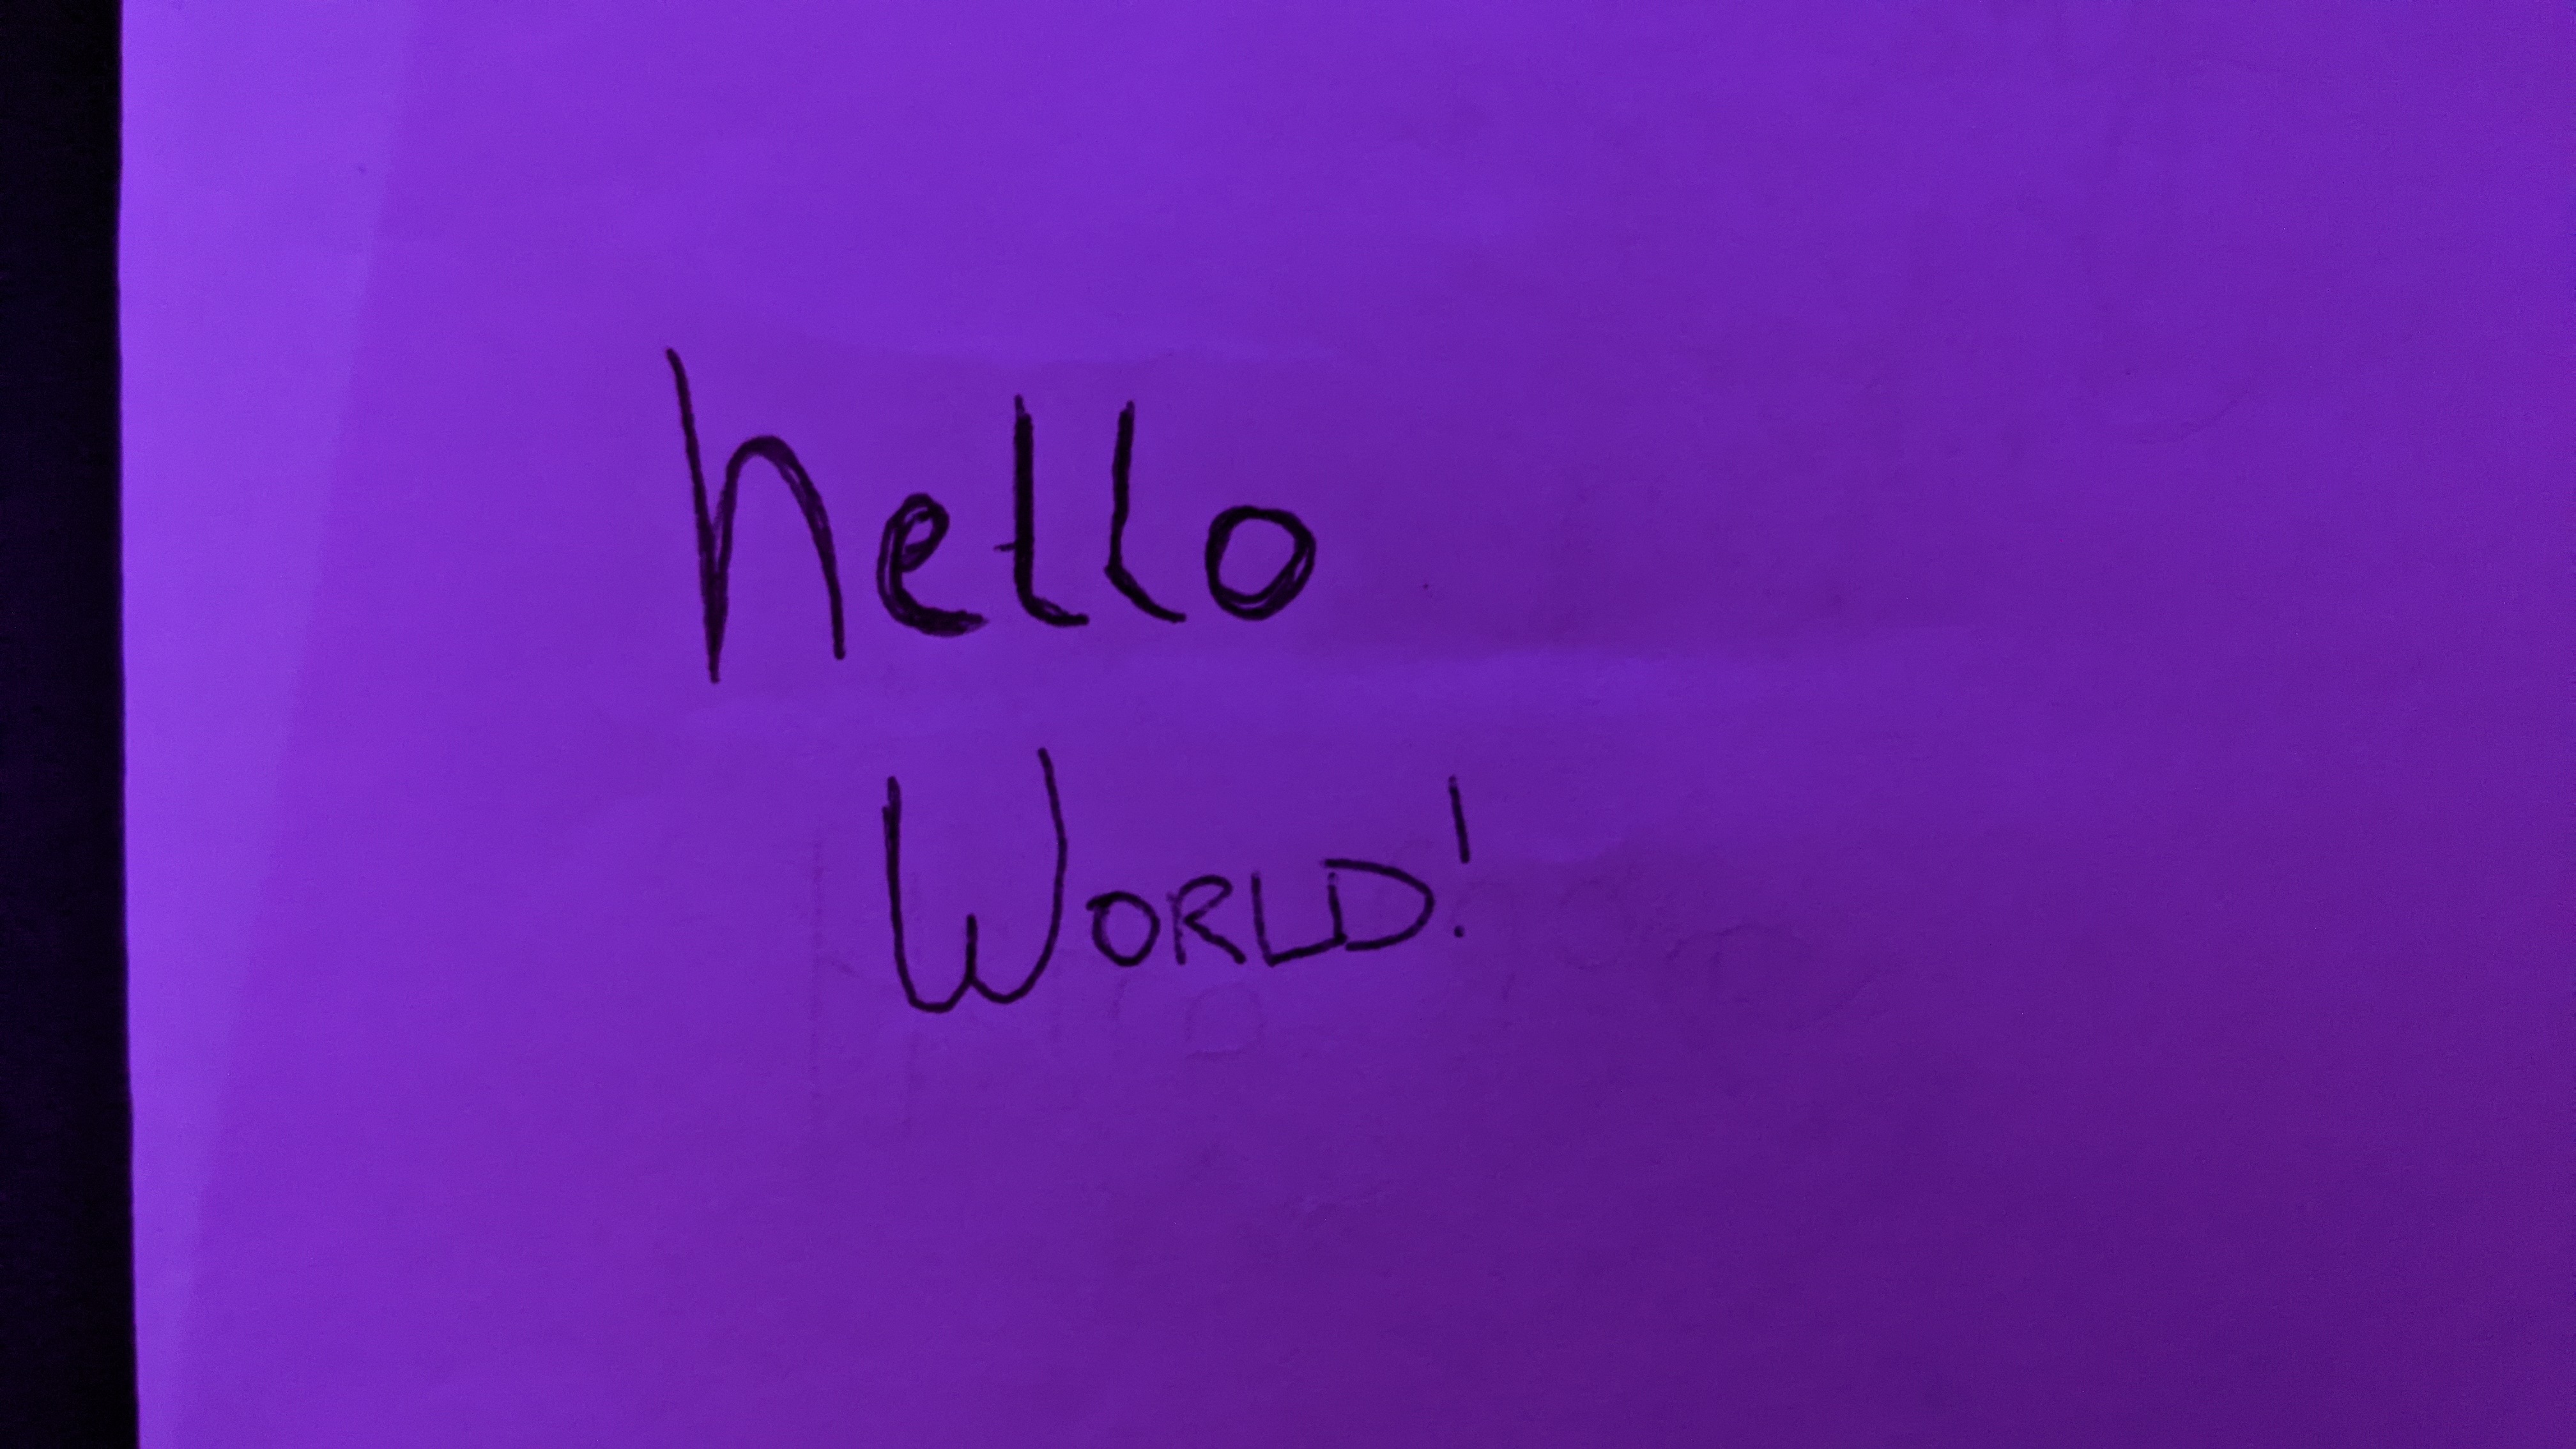 hello
WORLD!